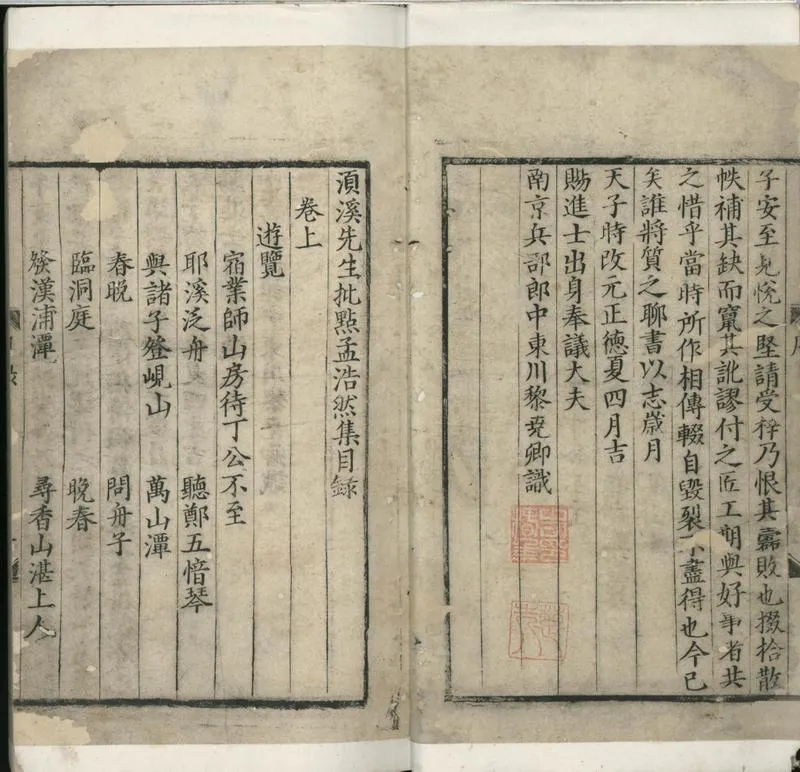 子安至見悅之堅請受梓乃恨其靄敗也掇拾散
帙補其缺而竄其訛謬付之匠工期與好事者共
之惜乎當時所作相傳輟自毀裂不盡得也今已
矣誰將質之聊書以志歲月
天子時改元正德夏四月吉
賜進士出身奉議大夫
南京兵部郎中東川黎堯卿識
序
須溪先生批點孟浩然集目錄
卷上
遊覽
宿業師山房待丁公不至
耶溪泛舟 聽鄭五愔琴
與諸子登峴山 萬山潭
春晚 問舟子
臨洞庭 晚春
發漢浦潭 尋香山湛上人